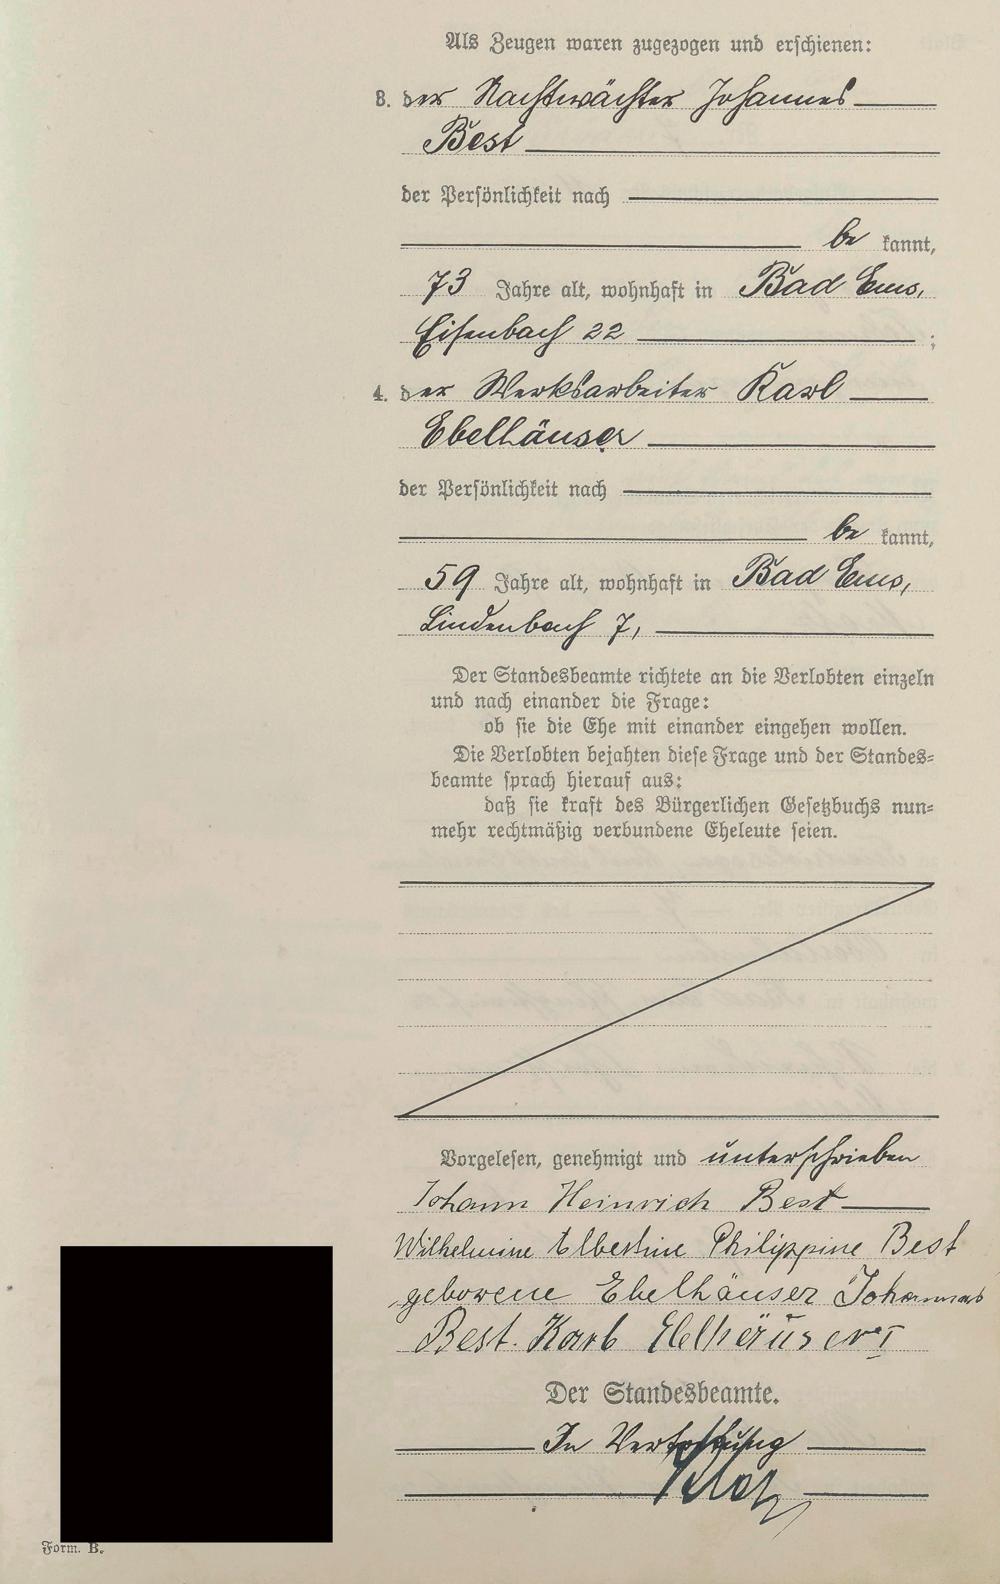 Als Zeugen waren zugezogen und erschienen:
3. der Nachtwächter Johannes
Best
der Persönlichkeit nach
be kannt,
73 Jahre alt, wohnhaft in Bad Ems,
Eisenbach 22 ;
4. der Werksarbeiter Karl
Ebelhäuser
der Persönlichkeit nach
be kannt,
59 Jahre alt, wohnhaft in Bad Ems,
Lindenbach 7,
Der Standesbeamte richtete an die Verlobten einzeln
und nach einander die Frage:
ob sie die Ehe mit einander eingehen wollen.
Die Verlobten bejahten diese Frage und der Standes-
beamte sprach hierauf aus:
daß sie kraft des Bürgerlichen Gesetzbuchs nun-
mehr rechtmäßig verbundene Eheleute seien.
Vorgelesen, genehmigt und unterschrieben
Johann Heinrich Best
Wilhelmine Albertine Philippine Best
geborene Ebelhäuser Johannes
Best. Karl Ebelhäuser I
Der Standesbeamte.
In Vertretung
Form. B.